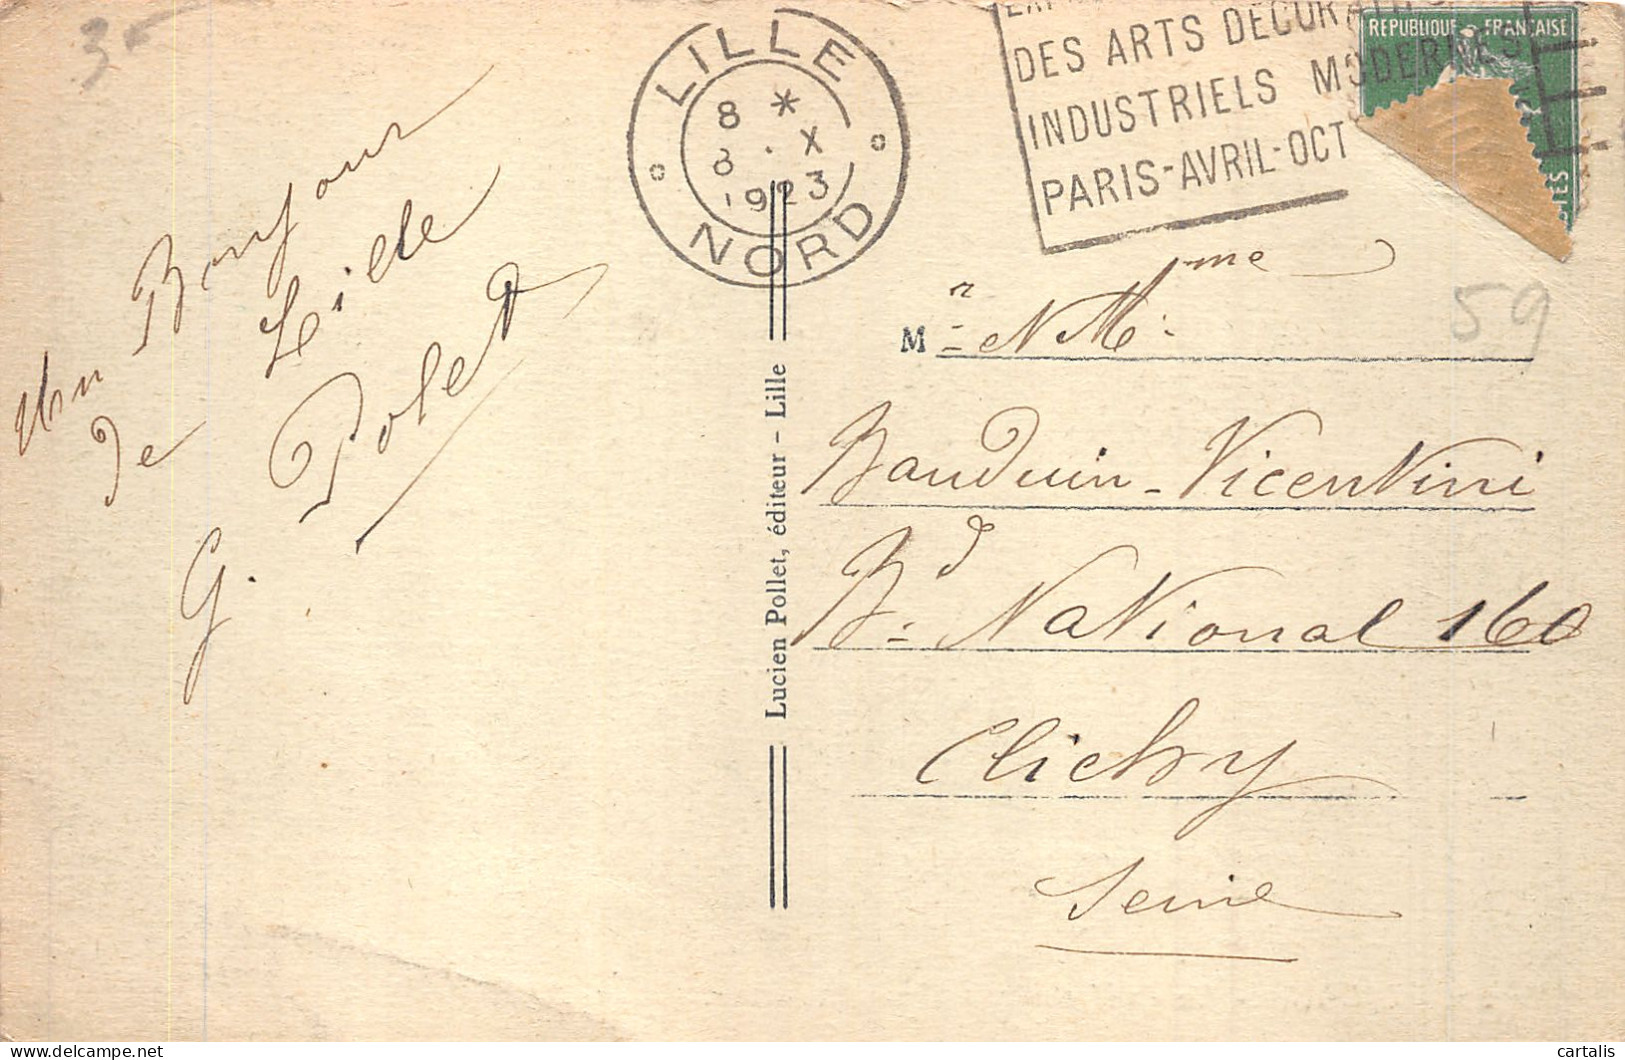 3
LILLE
8 *
8 · X
1923
NORD
DES ARTS DÉCORATIFS
INDUSTRIELS MODERNES
PARIS-AVRIL-OCT
REPUBLIQUE FRANÇAISE
59
Un Bonjour
de Lille
G. Polet
Lucien Pollet, éditeur - Lille
Mr & Mme
Bauduin-Vicentini
Bd National 160
Clichy
Seine
cartalis